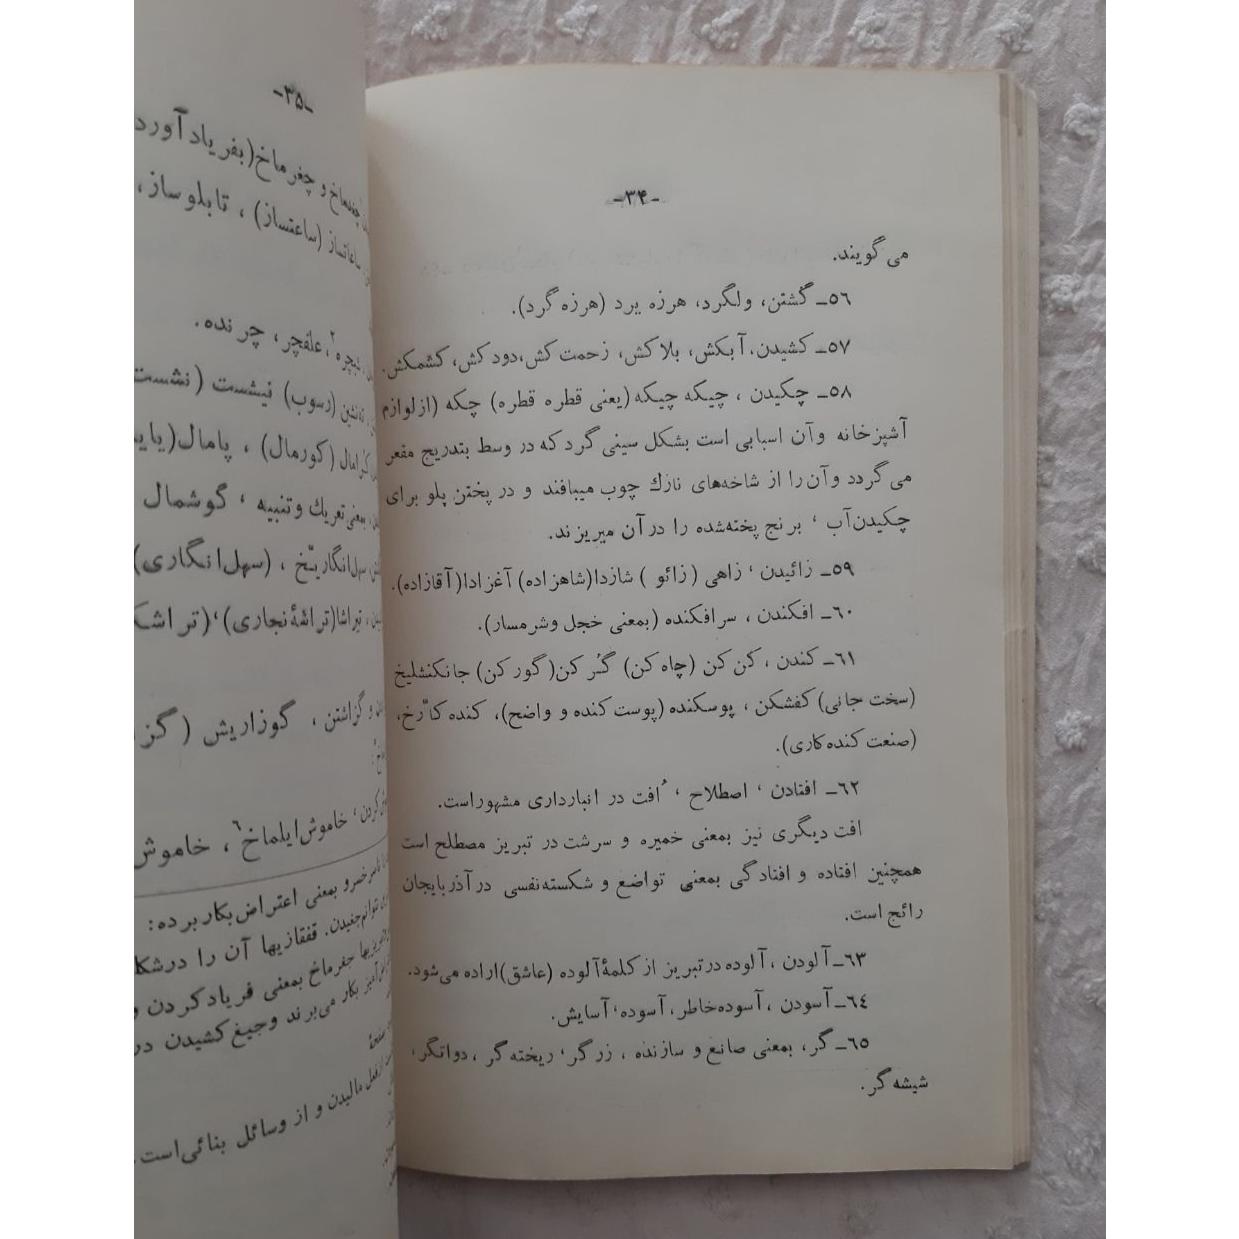 -۳۴-
می گویند.
۵۶ـ گشتن، ولگرد، هرزه یرد (هرزه گرد).
۵۷ـ کشیدن، آبکش، بلاکش، زحمت کش، دود کش، کشمکش.
۵۸ـ چکیدن ، چیکه چیکه (یعنی قطره قطره) چکه (ازلوازم
آشپزخانه وآن اسبابی است بشکل سینی گرد که در وسط بتدریج مقعر
می گردد وآن را از شاخه‌های نازك چوب میبافند و در پختن پلو برای
چکیدن‌آب ، برنج پخته‌شده را در آن میریزند.
۵۹ـ زائیدن ، زاهی (زائو ) شازدا(شاهزاده) آغزادا(آقازاده).
۶۰ـ افکندن ، سرافکنده (بمعنی خجل وشرمسار).
۶۱ـ کندن ، کن کن (چاه کن) گُر کن( گور کن) جانکنشلیخ
(سخت جانی) کفشکن ، پوسکنده (پوست کنده و واضح)، کنده کارّخ،
(صنعت کنده کاری).
۶۲ـ افتادن ، اصطلاح ، اُفت در انبارداری مشهوراست.
افت دیگری نیز بمعنی خمیره و سرشت در تبریز مصطلح است
همچنین افتاده و افتادگی بمعنی تواضع و شکسته‌نفسی در آذربایجان
رائج است.
۶۳ـ آلودن ، آلوده در تبریز از کلمهٔ آلوده (عاشق) اراده می‌شود.
۶۴ـ آسودن ، آسوده خاطر، آسوده، آسایش.
۶۵ـ گر، بمعنی صانع و سازنده ، زرگر، ریخته گر ، دواتگر،
شیشه گر.
-۳۵-
چندماخ و چغرماخ(بفریاد آورد
ساعاتساز (ساعتساز) ، تابلوساز،
علفچر ، چرنده.
ته‌نشین (رسوب) نیشست (نشست
(کورمال) ، پامال(پایـ
بمعنی تعریك وتنبیه ، گوشمال
سهل‌انگاریّخ ، (سهل‌انگاری)
تیراشا(تراشهٔ نجاری)،(تراشک
و گزاشتن ، گوزاریش (گز
خاموش‌ایلماخ۶ ، خاموش
ناصرخسرو بمعنی اعتراض بکار برده:
جغیدن. قفقازیها آن را درشکا
جغرماخ بمعنی فریاد کردن و
بکار می‌برند وجیغ کشیدن در
مالیدن و از وسائل بنائی‌است.